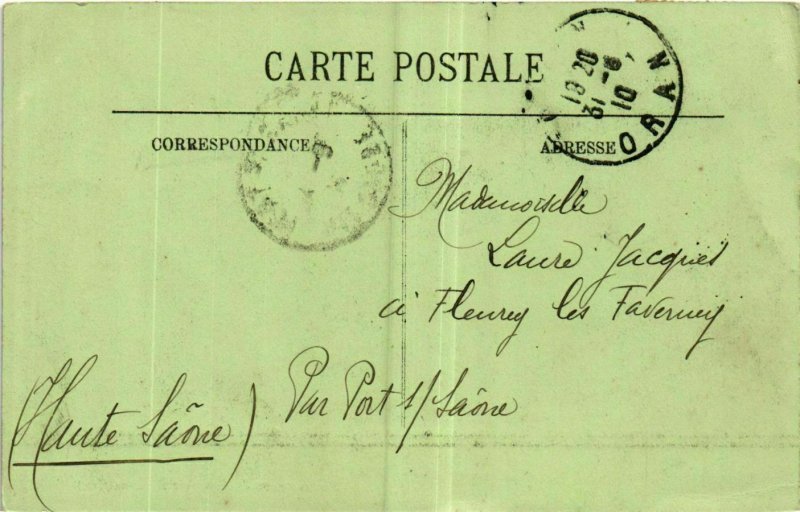 CARTE POSTALE
CORRESPONDANCE
ADRESSE
ORAN
18 20
31 -8
10
Mademoiselle
Laure Jacques
à Fleurey les Faverney
Par Port s/ Saône
(Haute Saône)